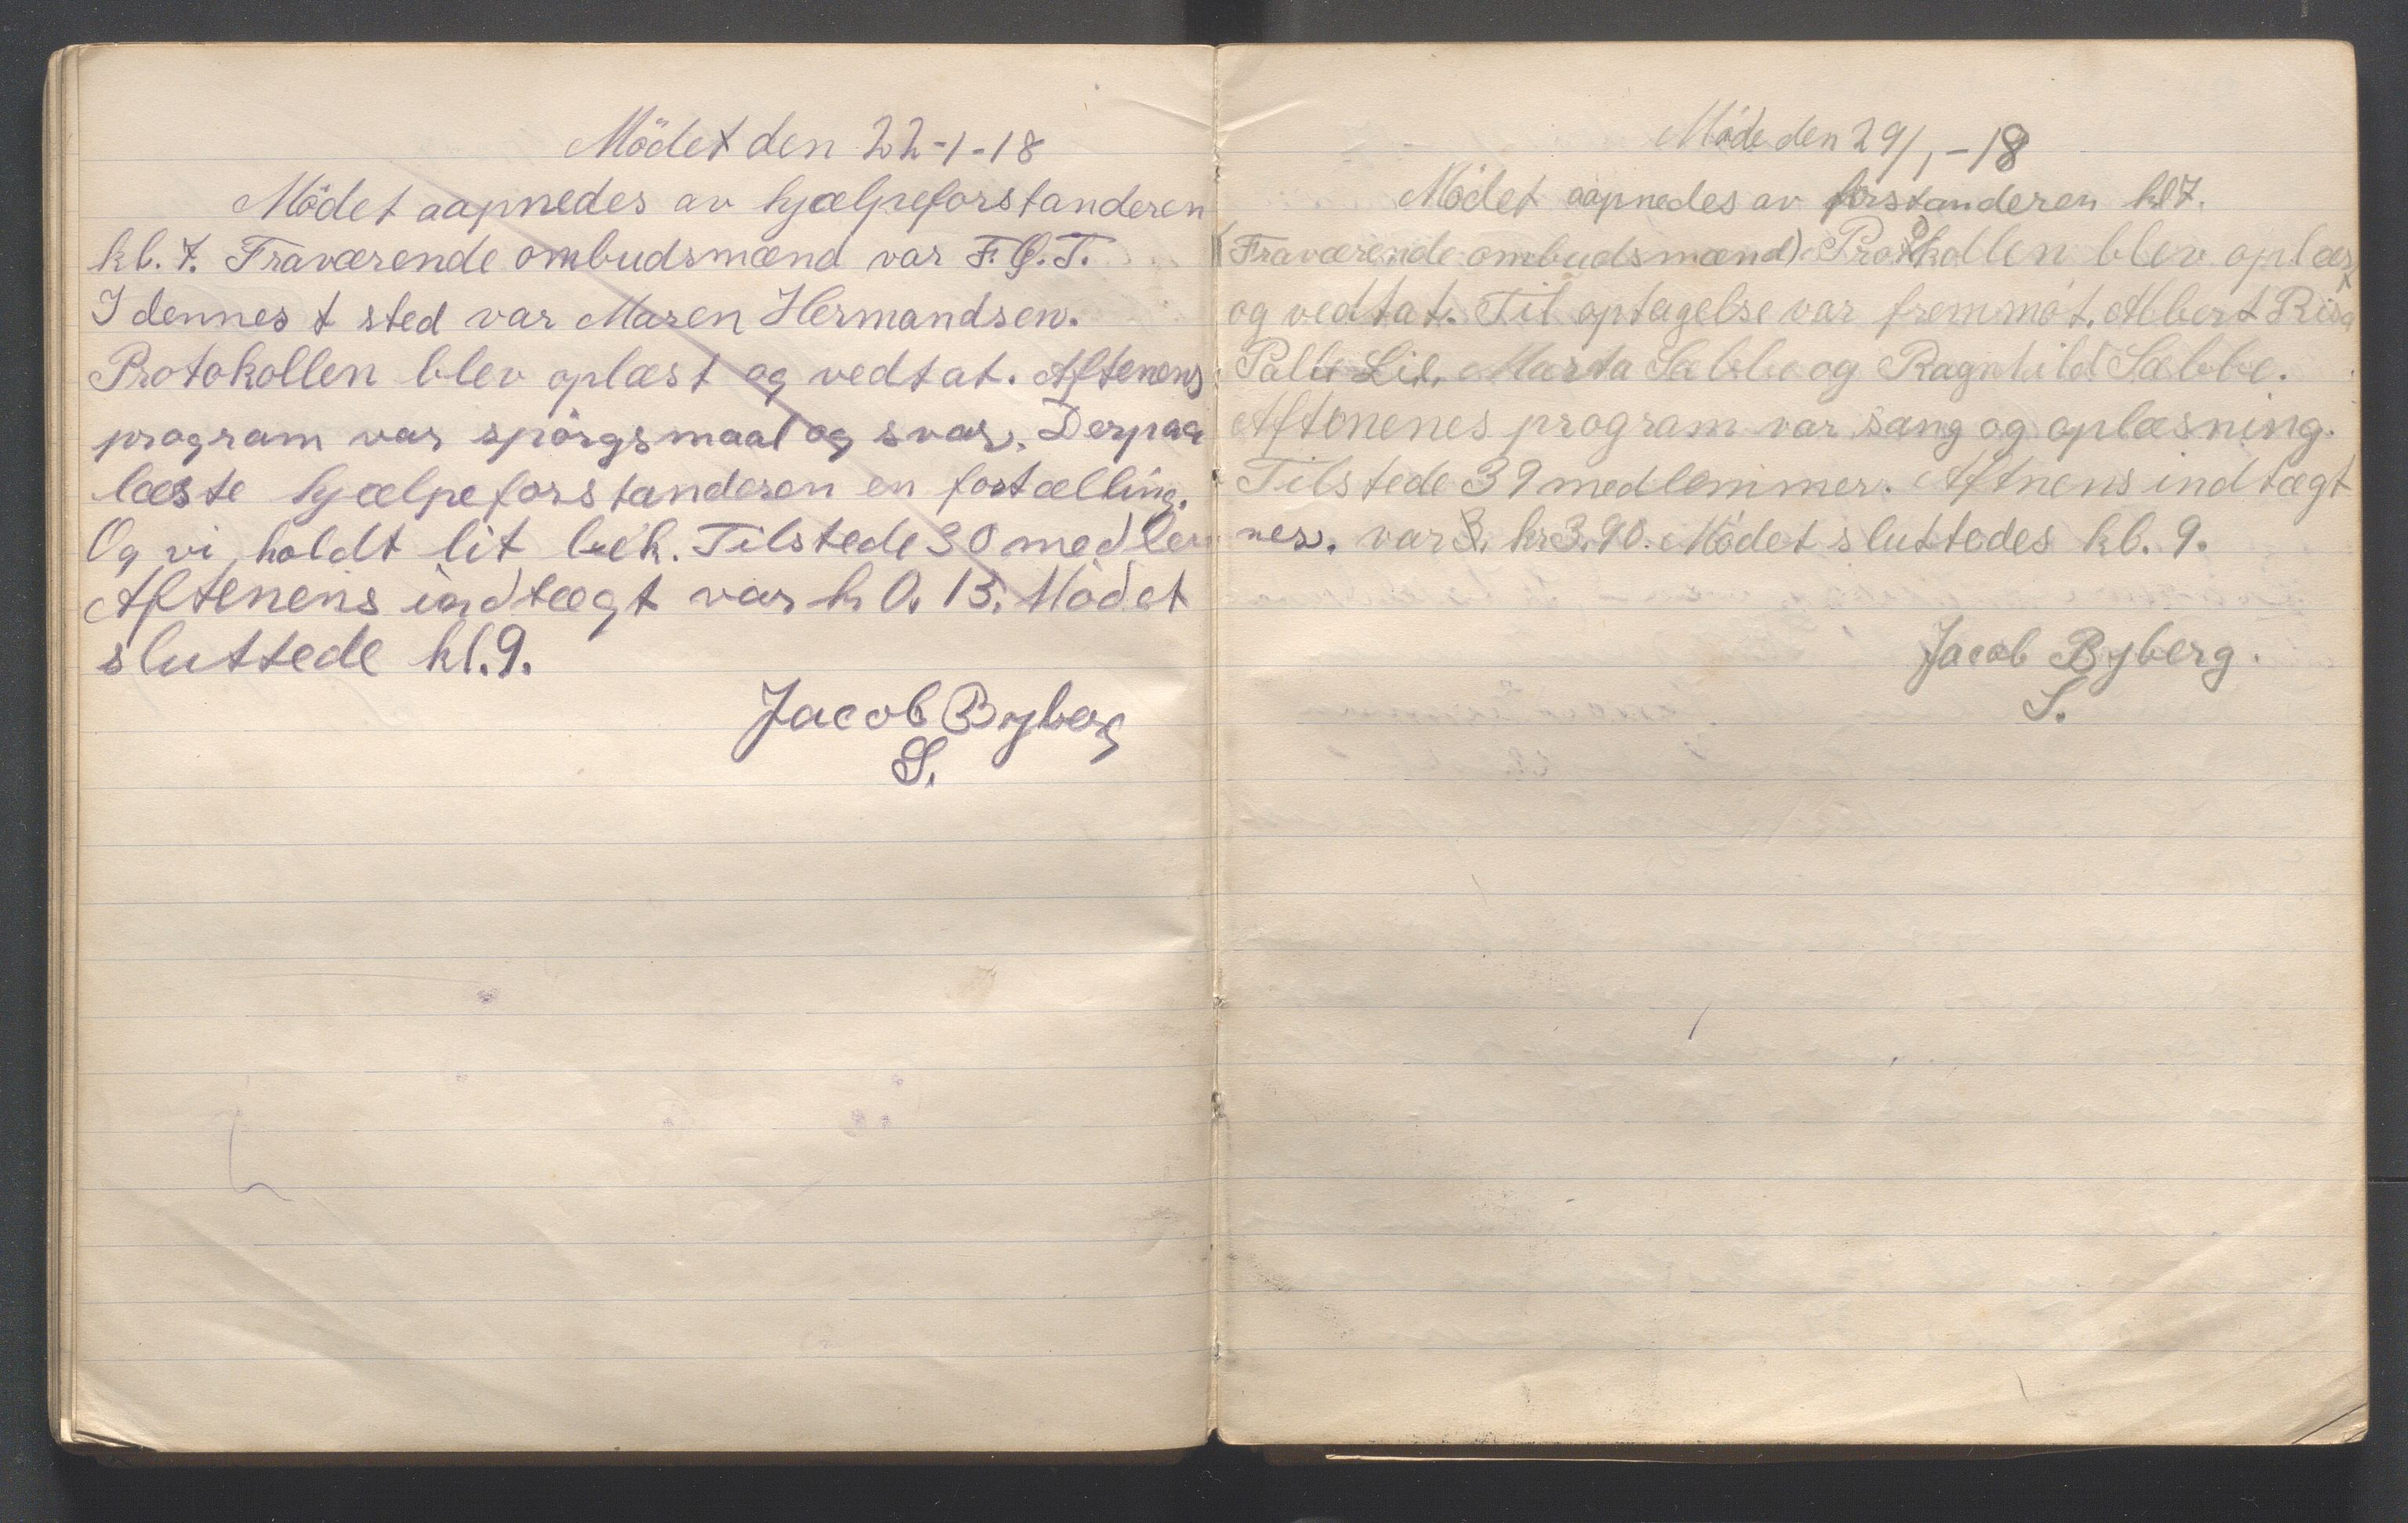 Mödet den 22-1-18
Mödet aapnedes av hjælpeforstanderen
kl. 7. Fraværende ombudsmænd var F.G.T.
I dennes t sted var Maren Hermandsen.
Protokollen blev oplæst og vedtat. Aftenens
program var spörgsmaal og svar. Derpaa
læste hjælpeforstanderen en fortælling.
Og vi holdt lit leik. Tilstede 30 medlem
Aftenens indtægt var kr 0. 15. Mödet
sluttede kl. 9.
Jacob Byberg
S.
Möde den 29/1-18
Mödet aapnedes av forstanderen kl 7.
(Fraværende ombudsmænd) Protokollen blev oplæst
og vedtat. Til optagelse var fremmöt. Albert Risa
Palle Lie, Marta Sæbbe og Ragnhild Sæbbe.
Aftenenes program var sang og oplæsning.
Tilstede 39 medlemmer. Aftnens indtægt
nes. var 3. kr 3.90. Mödet sluttedes kl. 9.
Jacob Byberg.
S.